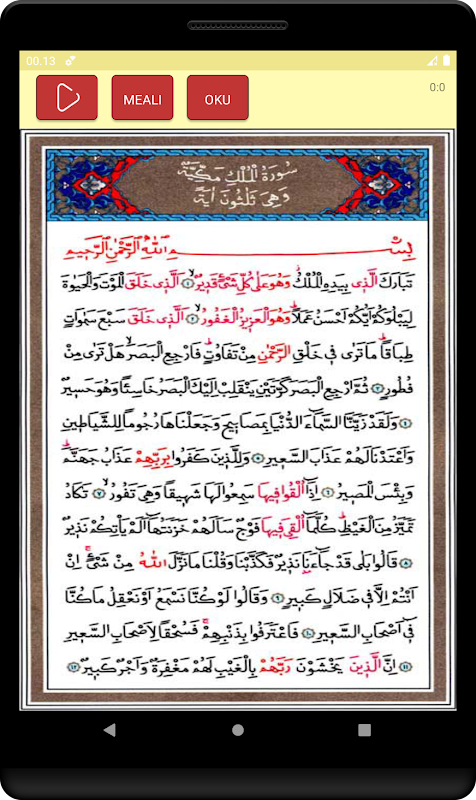 00.13
MEALI
OKU
0:0
سُورَةُ الْمُلْكِ مَكِّيَّةٌ
وَهِىَ ثَلٰثُونَ اٰيَةً
بِسْمِ اللّٰهِ الرَّحْمٰنِ الرَّحِيمِ
تَبَارَكَ الَّذِى بِيَدِهِ الْمُلْكُۘ وَهُوَ عَلٰى كُلِّ شَىْءٍ قَدِيرٌۙ ﴿١﴾ اَلَّذِى خَلَقَ الْمَوْتَ وَالْحَيٰوةَ
لِيَبْلُوَكُمْ اَيُّكُمْ اَحْسَنُ عَمَلًاۜ وَهُوَ الْعَزِيزُ الْغَفُورُۙ ﴿٢﴾ اَلَّذِى خَلَقَ سَبْعَ سَمٰوَاتٍ
طِبَاقًاۜ مَا تَرٰى فِى خَلْقِ الرَّحْمٰنِ مِنْ تَفَاوُتٍۜ فَارْجِعِ الْبَصَرَۙ هَلْ تَرٰى مِنْ
فُطُورٍ ﴿٣﴾ ثُمَّ ارْجِعِ الْبَصَرَ كَرَّتَيْنِ يَنْقَلِبْ اِلَيْكَ الْبَصَرُ خَاسِئًا وَهُوَ حَسِيرٌ
﴿٤﴾ وَلَقَدْ زَيَّنَّا السَّمَٓاءَ الدُّنْيَا بِمَصَابِيحَ وَجَعَلْنَاهَا رُجُومًا لِلشَّيَاطِينِ
وَاَعْتَدْنَا لَهُمْ عَذَابَ السَّعِيرِ ﴿٥﴾ وَلِلَّذِينَ كَفَرُوا بِرَبِّهِمْ عَذَابُ جَهَنَّمَۜ
وَبِئْسَ الْمَصِيرُ ﴿٦﴾ اِذَٓا اُلْقُوا فِيهَا سَمِعُوا لَهَا شَهِيقًا وَهِىَ تَفُورُۙ ﴿٧﴾ تَكَادُ
تَمَيَّزُ مِنَ الْغَيْظِۜ كُلَّمَٓا اُلْقِىَ فِيهَا فَوْجٌ سَاَلَهُمْ خَزَنَتُهَٓا اَلَمْ يَأْتِكُمْ نَذِيرٌ
﴿٨﴾ قَالُوا بَلٰى قَدْ جَٓاءَنَا نَذِيرٌ فَكَذَّبْنَا وَقُلْنَا مَا نَزَّلَ اللّٰهُ مِنْ شَىْءٍۚ اِنْ
اَنْتُمْ اِلَّا فِى ضَلَالٍ كَبِيرٍ ﴿٩﴾ وَقَالُوا لَوْ كُنَّا نَسْمَعُ اَوْ نَعْقِلُ مَا كُنَّا
فِٓى اَصْحَابِ السَّعِيرِ ﴿١٠﴾ فَاعْتَرَفُوا بِذَنْبِهِمْۚ فَسُحْقًا لِاَصْحَابِ السَّعِيرِ
﴿١١﴾ اِنَّ الَّذِينَ يَخْشَوْنَ رَبَّهُمْ بِالْغَيْبِ لَهُمْ مَغْفِرَةٌ وَاَجْرٌ كَبِيرٌ ﴿١٢﴾